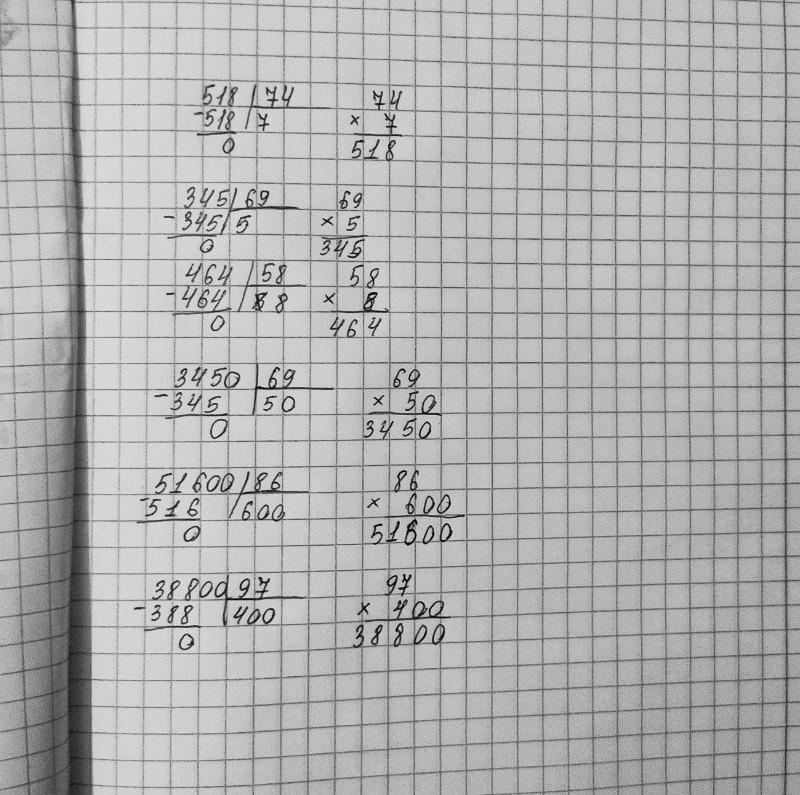 518 74 74
-518 7 × 7
0 518
345 69 69
-345 5 × 5
0 345
464 58 58
-464 8 × 8
0 464
3450 69 69
-345 50 × 50
0 3450
51600 86 86
-516 600 × 600
0 51600
38800 97 97
-388 400 × 400
0 38800